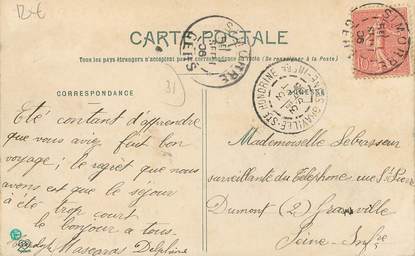 12€
CARTE POSTALE
Tous les pays étrangers n'acceptent pas correspondance au recto. (Se renseigner à la Poste)
CORRESPONDANCE
31
Eté contant d'apprendre
que vous aviez fait bon
voyage; le regret que nous
avons est que le séjour
à été trop court.
le bonjour a tous.
Mascaras Delphine
Mademoiselle Lebasseur
surveillante du Téléphone rue St Pierre
Dumont (2) Graville
Seine-Infre
GERS
GRAVILLE-STE HONORINE